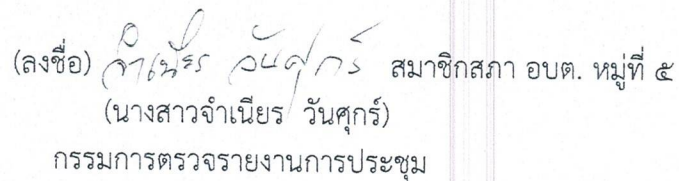 (ลงชื่อ) จำเนียร วันศุกร์ สมาชิกสภา อบต. หมู่ที่ ๕
(นางสาวจำเนียร วันศุกร์)
กรรมการตรวจรายงานการประชุม